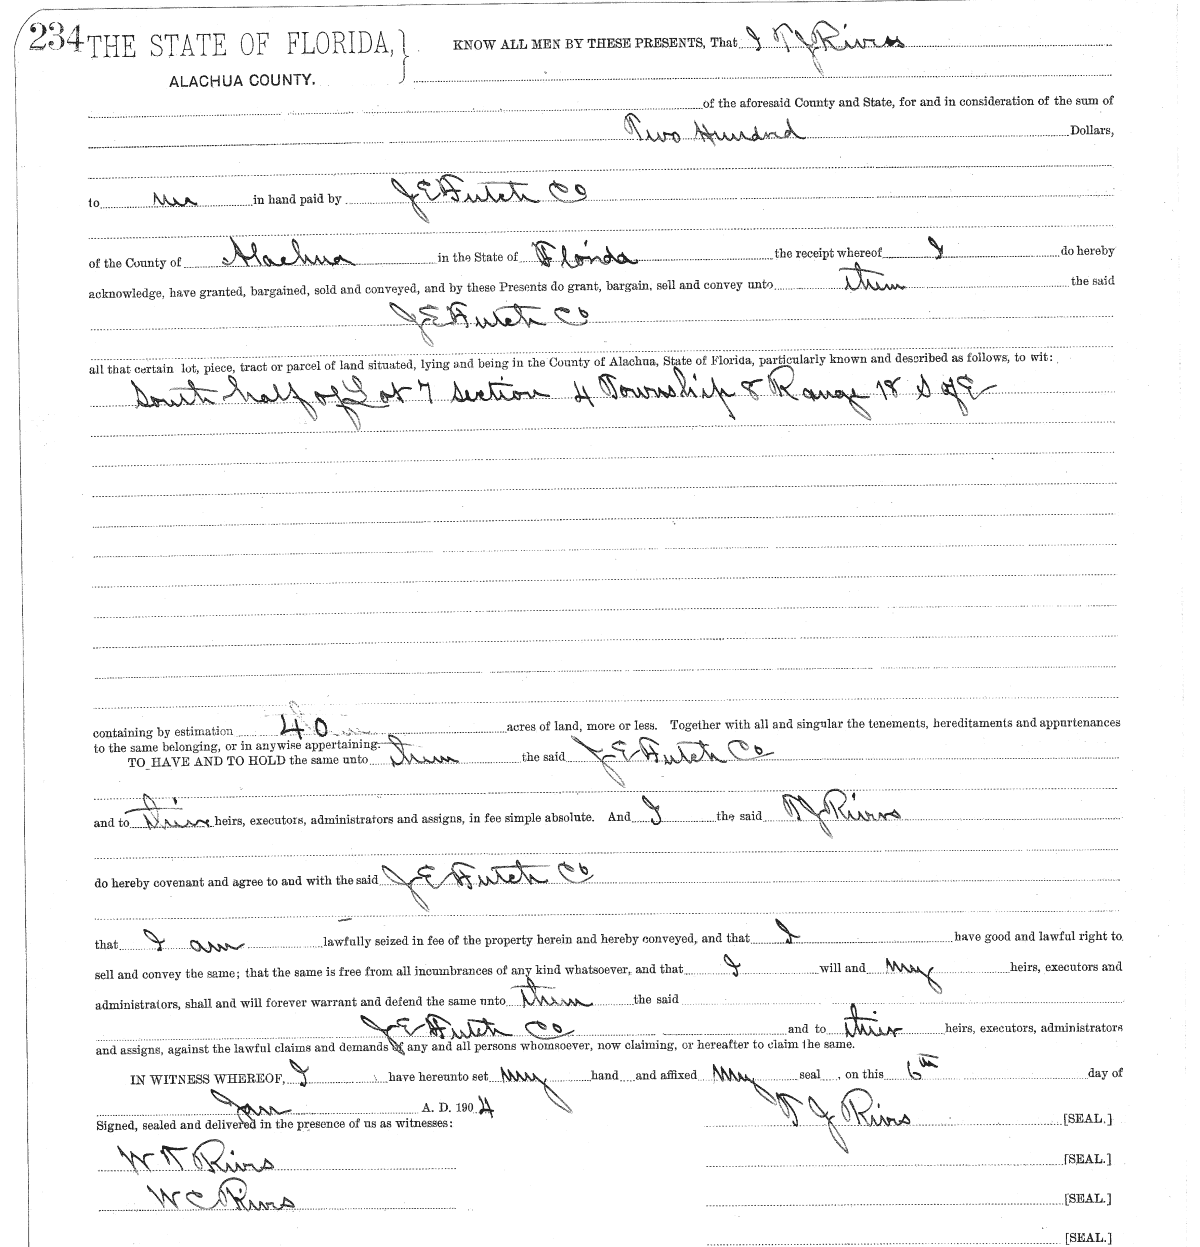 234 THE STATE OF FLORIDA, } KNOW ALL MEN BY THESE PRESENTS, That I T J Rivers
ALACHUA COUNTY.
of the aforesaid County and State, for and in consideration of the sum of
Two Hundred Dollars,
to me in hand paid by J E Futch Co
of the County of Alachua in the State of Florida the receipt whereof I do hereby
acknowledge, have granted, bargained, sold and conveyed, and by these Presents do grant, bargain, sell and convey unto them the said
J E Futch Co
all that certain lot, piece, tract or parcel of land situated, lying and being in the County of Alachua, State of Florida, particularly known and described as follows, to wit:
South half of Lot 7 Section 4 Township 8 Range 18 S & E
containing by estimation 40 acres of land, more or less. Together with all and singular the tenements, hereditaments and appurtenances
to the same belonging, or in anywise appertaining.
TO HAVE AND TO HOLD the same unto them the said J E Futch Co
and to their heirs, executors, administrators and assigns, in fee simple absolute. And I the said T J Rivers
do hereby covenant and agree to and with the said J E Futch Co
that I am lawfully seized in fee of the property herein and hereby conveyed, and that I have good and lawful right to
sell and convey the same; that the same is free from all incumbrances of any kind whatsoever, and that I will and my heirs, executors and
administrators, shall and will forever warrant and defend the same unto them the said
J E Futch Co and to their heirs, executors, administrators
and assigns, against the lawful claims and demands of any and all persons whomsoever, now claiming, or hereafter to claim the same.
IN WITNESS WHEREOF, I have hereunto set my hand and affixed my seal , on this 6th day of
Jan A. D. 1904 T J Rivers [SEAL.]
Signed, sealed and delivered in the presence of us as witnesses:
W N Rivers [SEAL.]
W C Rivers [SEAL.]
[SEAL.]